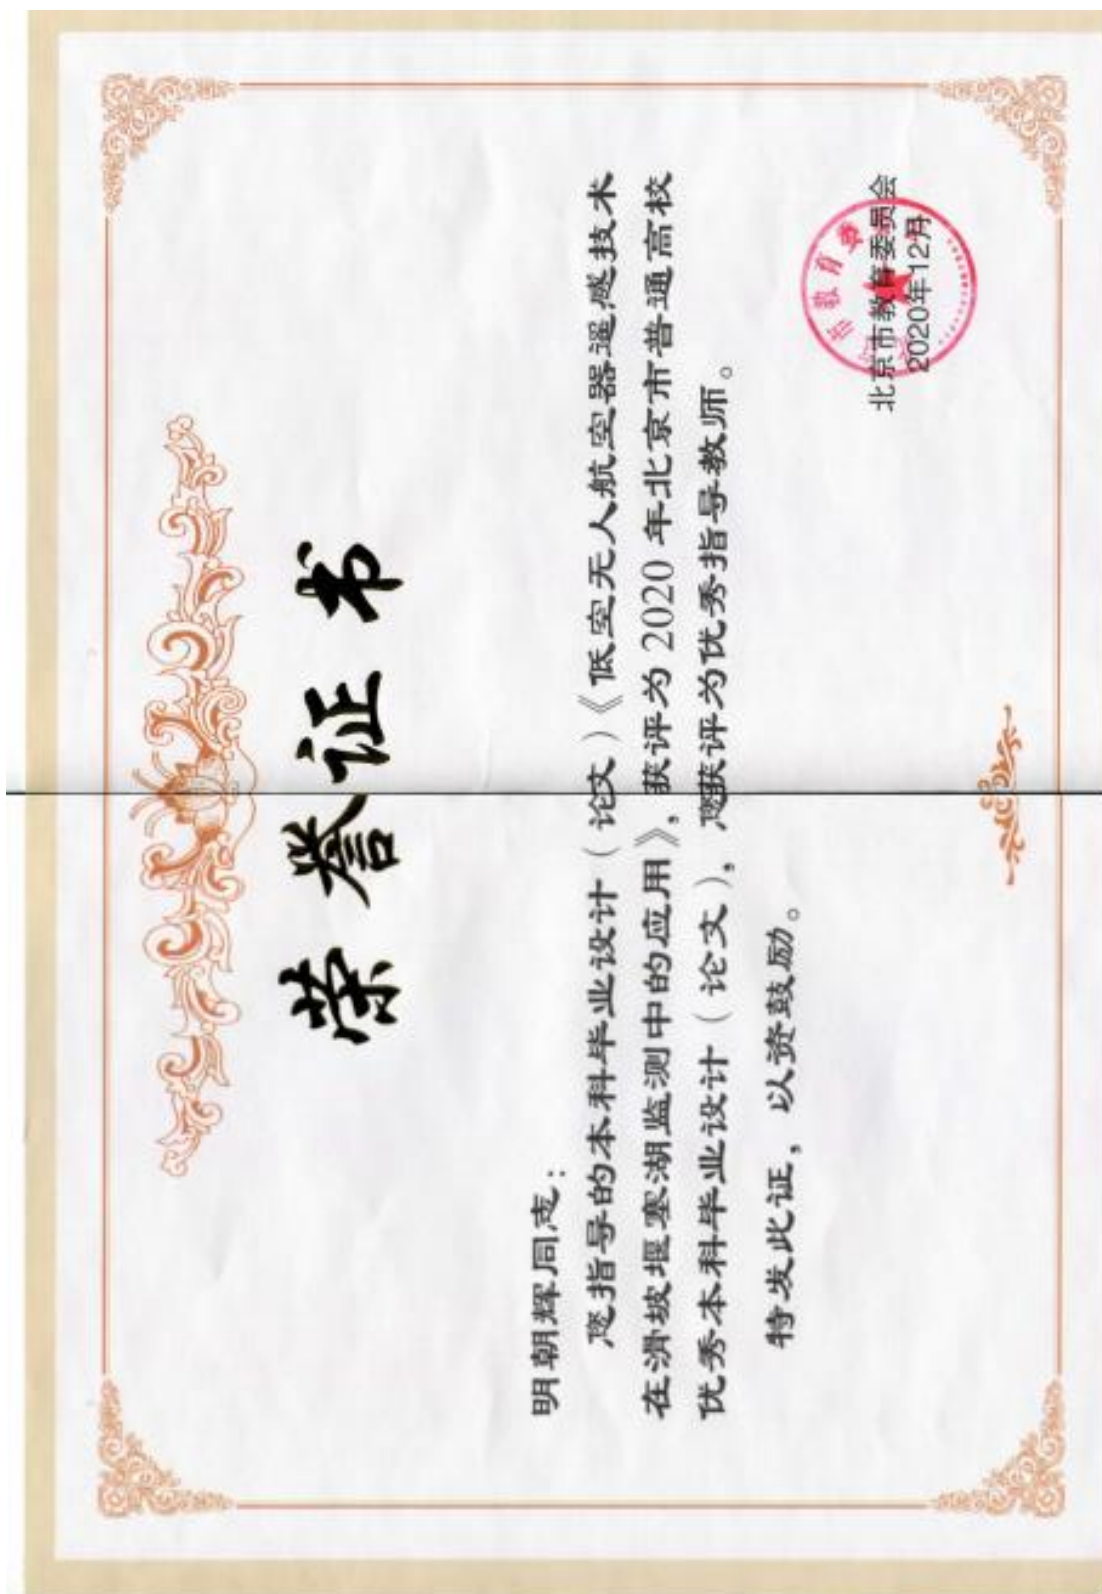 荣誉证书
明朝辉同志：
您指导的本科毕业设计（论文）《低空无人航空器遥感技术
在滑坡堰塞湖监测中的应用》，获评为2020年北京市普通高校
优秀本科毕业设计（论文），您获评为优秀指导教师。
特发此证，以资鼓励。
北京市教育委员会
2020年12月